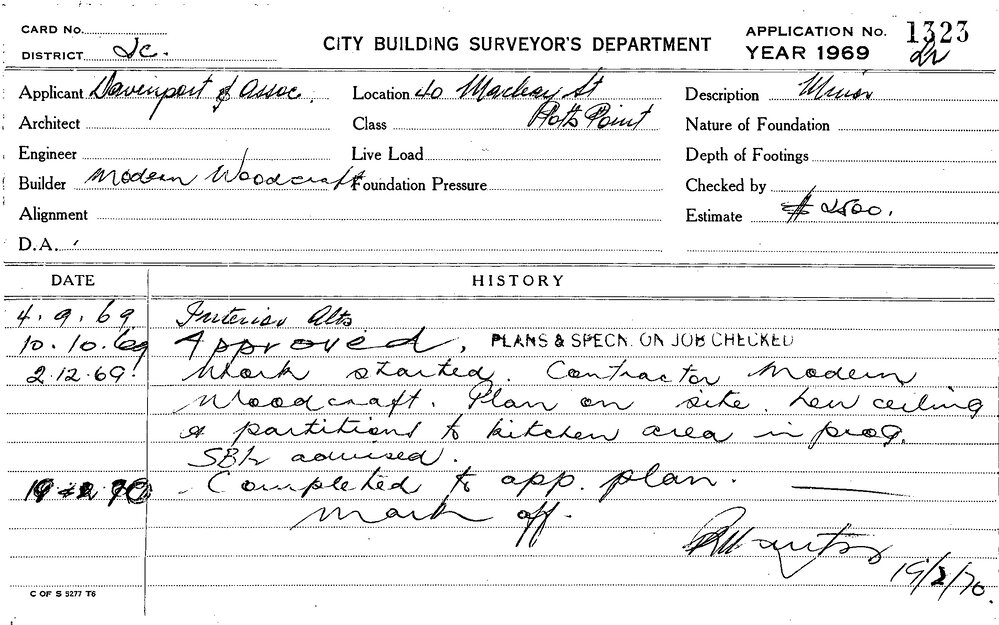 CARD No.
DISTRICT 2c.
CITY BUILDING SURVEYOR'S DEPARTMENT
APPLICATION No. 1323
YEAR 1969
Applicant Davenport & Assoc.
Location 40 Macleay St
Potts Point
Description Minor
Architect
Class
Nature of Foundation
Engineer
Live Load
Depth of Footings
Builder Modern Woodcraft
Foundation Pressure
Checked by
Alignment
Estimate $2500.
D.A.
DATE
HISTORY
4.9.69 Interior Alts.
10.10.69 Approved, PLANS & SPECN. ON JOB CHECKED
2.12.69. Work started. Contractor Modern
Woodcraft. Plan on site. New ceiling
& partitions to kitchen area in prog.
advised.
Completed to app. plan.
Mark off.
19/2/70.
C OF S 5277 T6